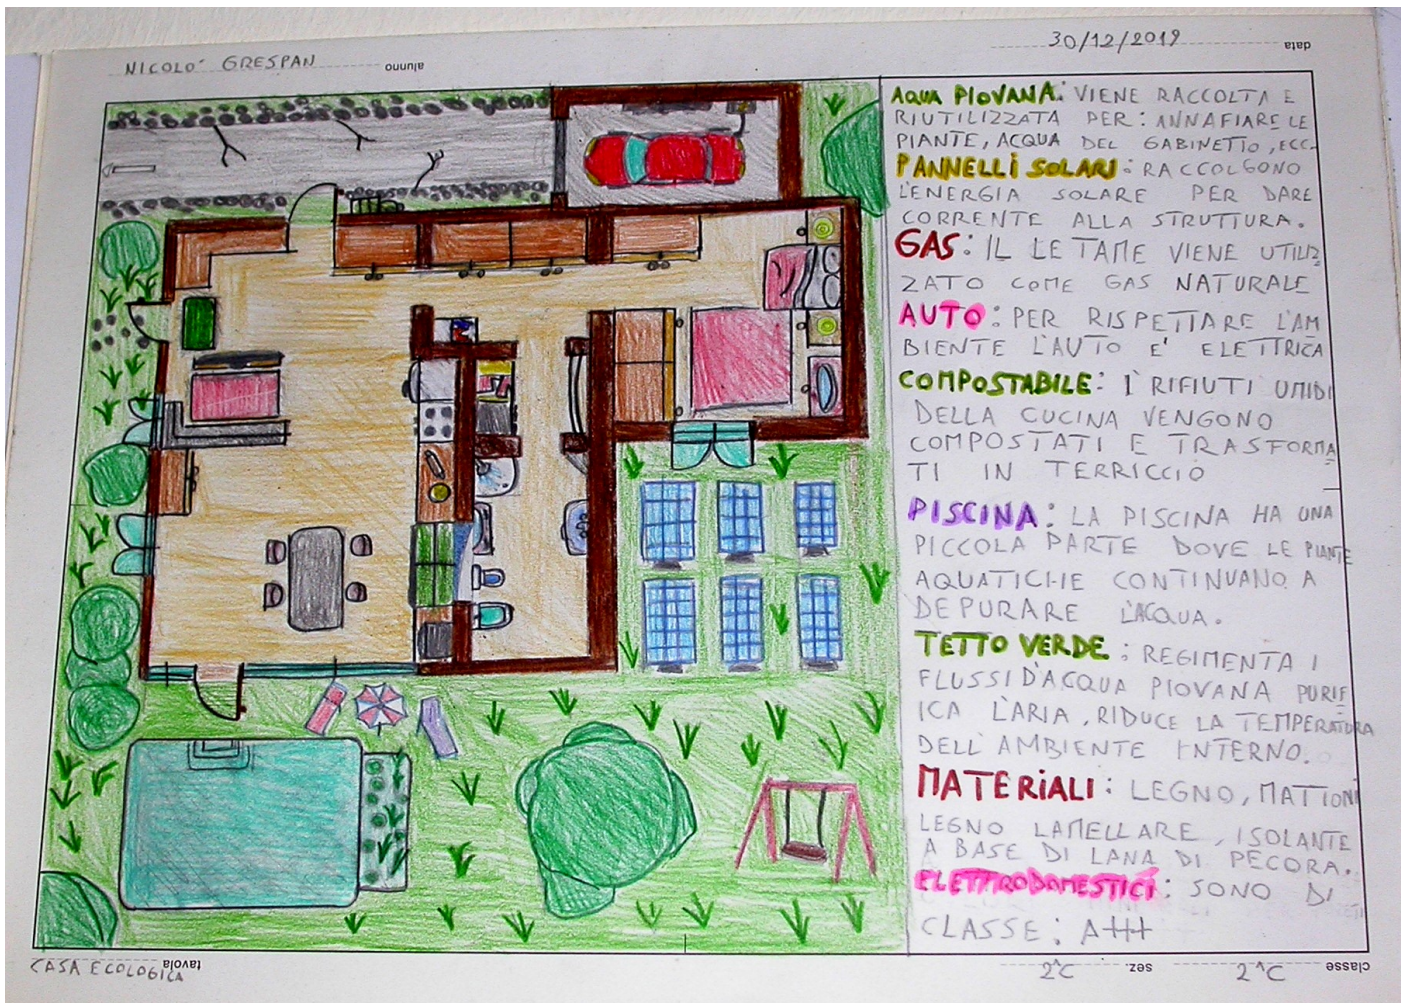 NICOLO' GRESPAN
alunno
30/12/2019
data
AQUA PIOVANA: VIENE RACCOLTA E
RIUTILIZZATA PER: ANNAFIARE LE
PIANTE, ACQUA DEL GABINETTO, ECC.
PANNELLI SOLARI: RACCOLGONO
L'ENERGIA SOLARE PER DARE
CORRENTE ALLA STRUTTURA.
GAS: IL LETAME VIENE UTILIZ
ZATO COME GAS NATURALE
AUTO: PER RISPETTARE L'AM
BIENTE L'AUTO E' ELETTRICA
COMPOSTABILE: I RIFIUTI UMIDI
DELLA CUCINA VENGONO
COMPOSTATI E TRASFORMA
TI IN TERRICCIO
PISCINA: LA PISCINA HA UNA
PICCOLA PARTE DOVE LE PIANTE
AQUATICHE CONTINUANO A
DEPURARE L'ACQUA.
TETTO VERDE: REGIMENTA I
FLUSSI D'ACQUA PIOVANA PURIF
ICA L'ARIA, RIDUCE LA TEMPERATURA
DELL'AMBIENTE INTERNO.
MATERIALI: LEGNO, MATTONI
LEGNO LAMELLARE, ISOLANTE
A BASE DI LANA DI PECORA.
ELETTRODOMESTICI: SONO DI
CLASSE: A+++
CASA ECOLOGICA
tavola
2^C
sez.
2^C
classe